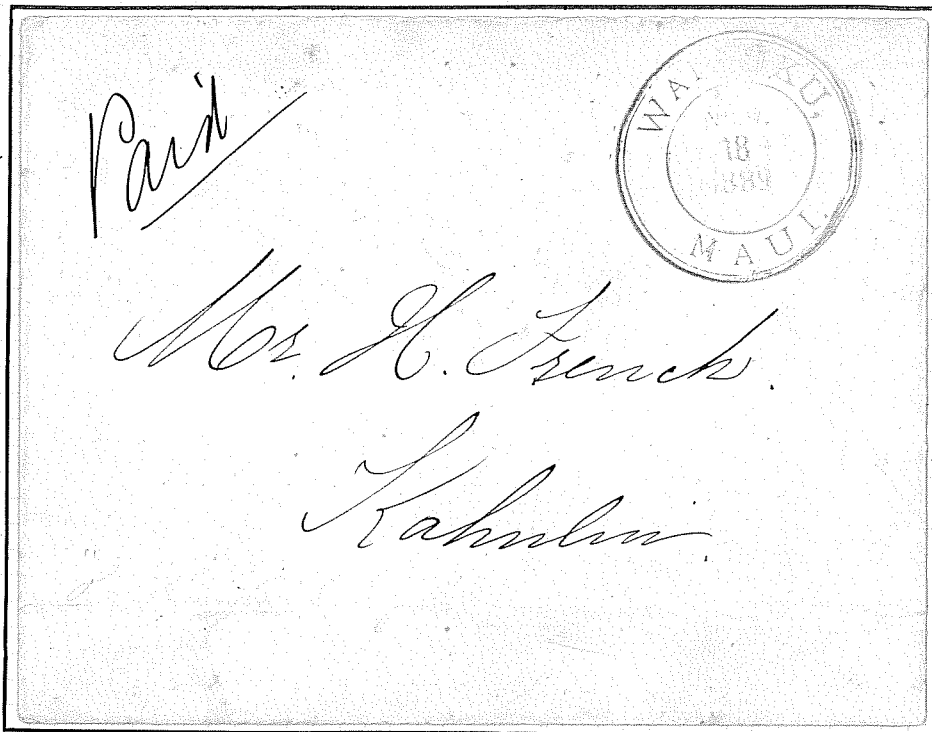 Paid
18
1889
MAUI.
Mr. H. French.
Kahului.